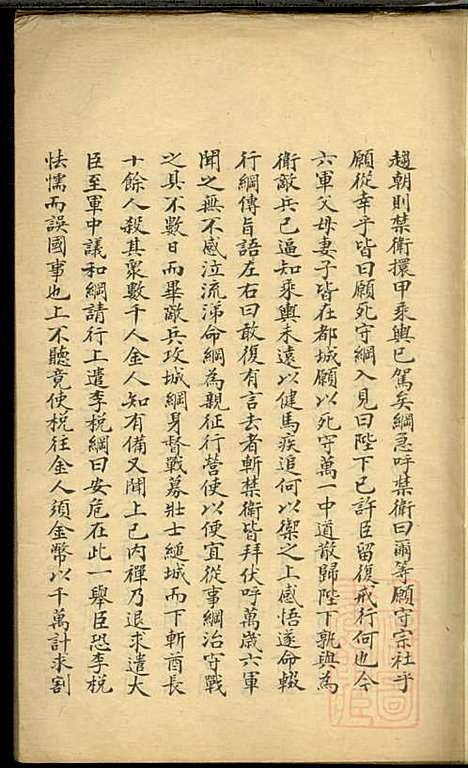 趨朝則禁衛擐甲乘輿已駕矣綱急呼禁衛曰爾等願守宗社乎
願從幸乎皆曰願死守綱入見曰陛下已許臣留復戒行何也今
六軍父母妻子皆在都城願以死守萬一中道散歸陛下孰與為
衛敵兵已逼知乘輿未遠以健馬疾追何以禦之上感悟遂命輟
行綱傳旨語左右曰敢復有言去者斬禁衛皆拜伏呼萬歲六軍
聞之無不感泣流涕命綱為親征行營使以便宜從事綱治守戰
之具不數日而畢敵兵攻城綱身督戰募壯士縋城而下斬酋長
十餘人殺其眾數千人金人知有備又聞上已內禪乃退求遣大
臣至軍中議和綱請行上遣李稅綱曰安危在此一舉臣恐李稅
怯懦而誤國事也上不聽竟使稅往金人須金幣以千萬計求割